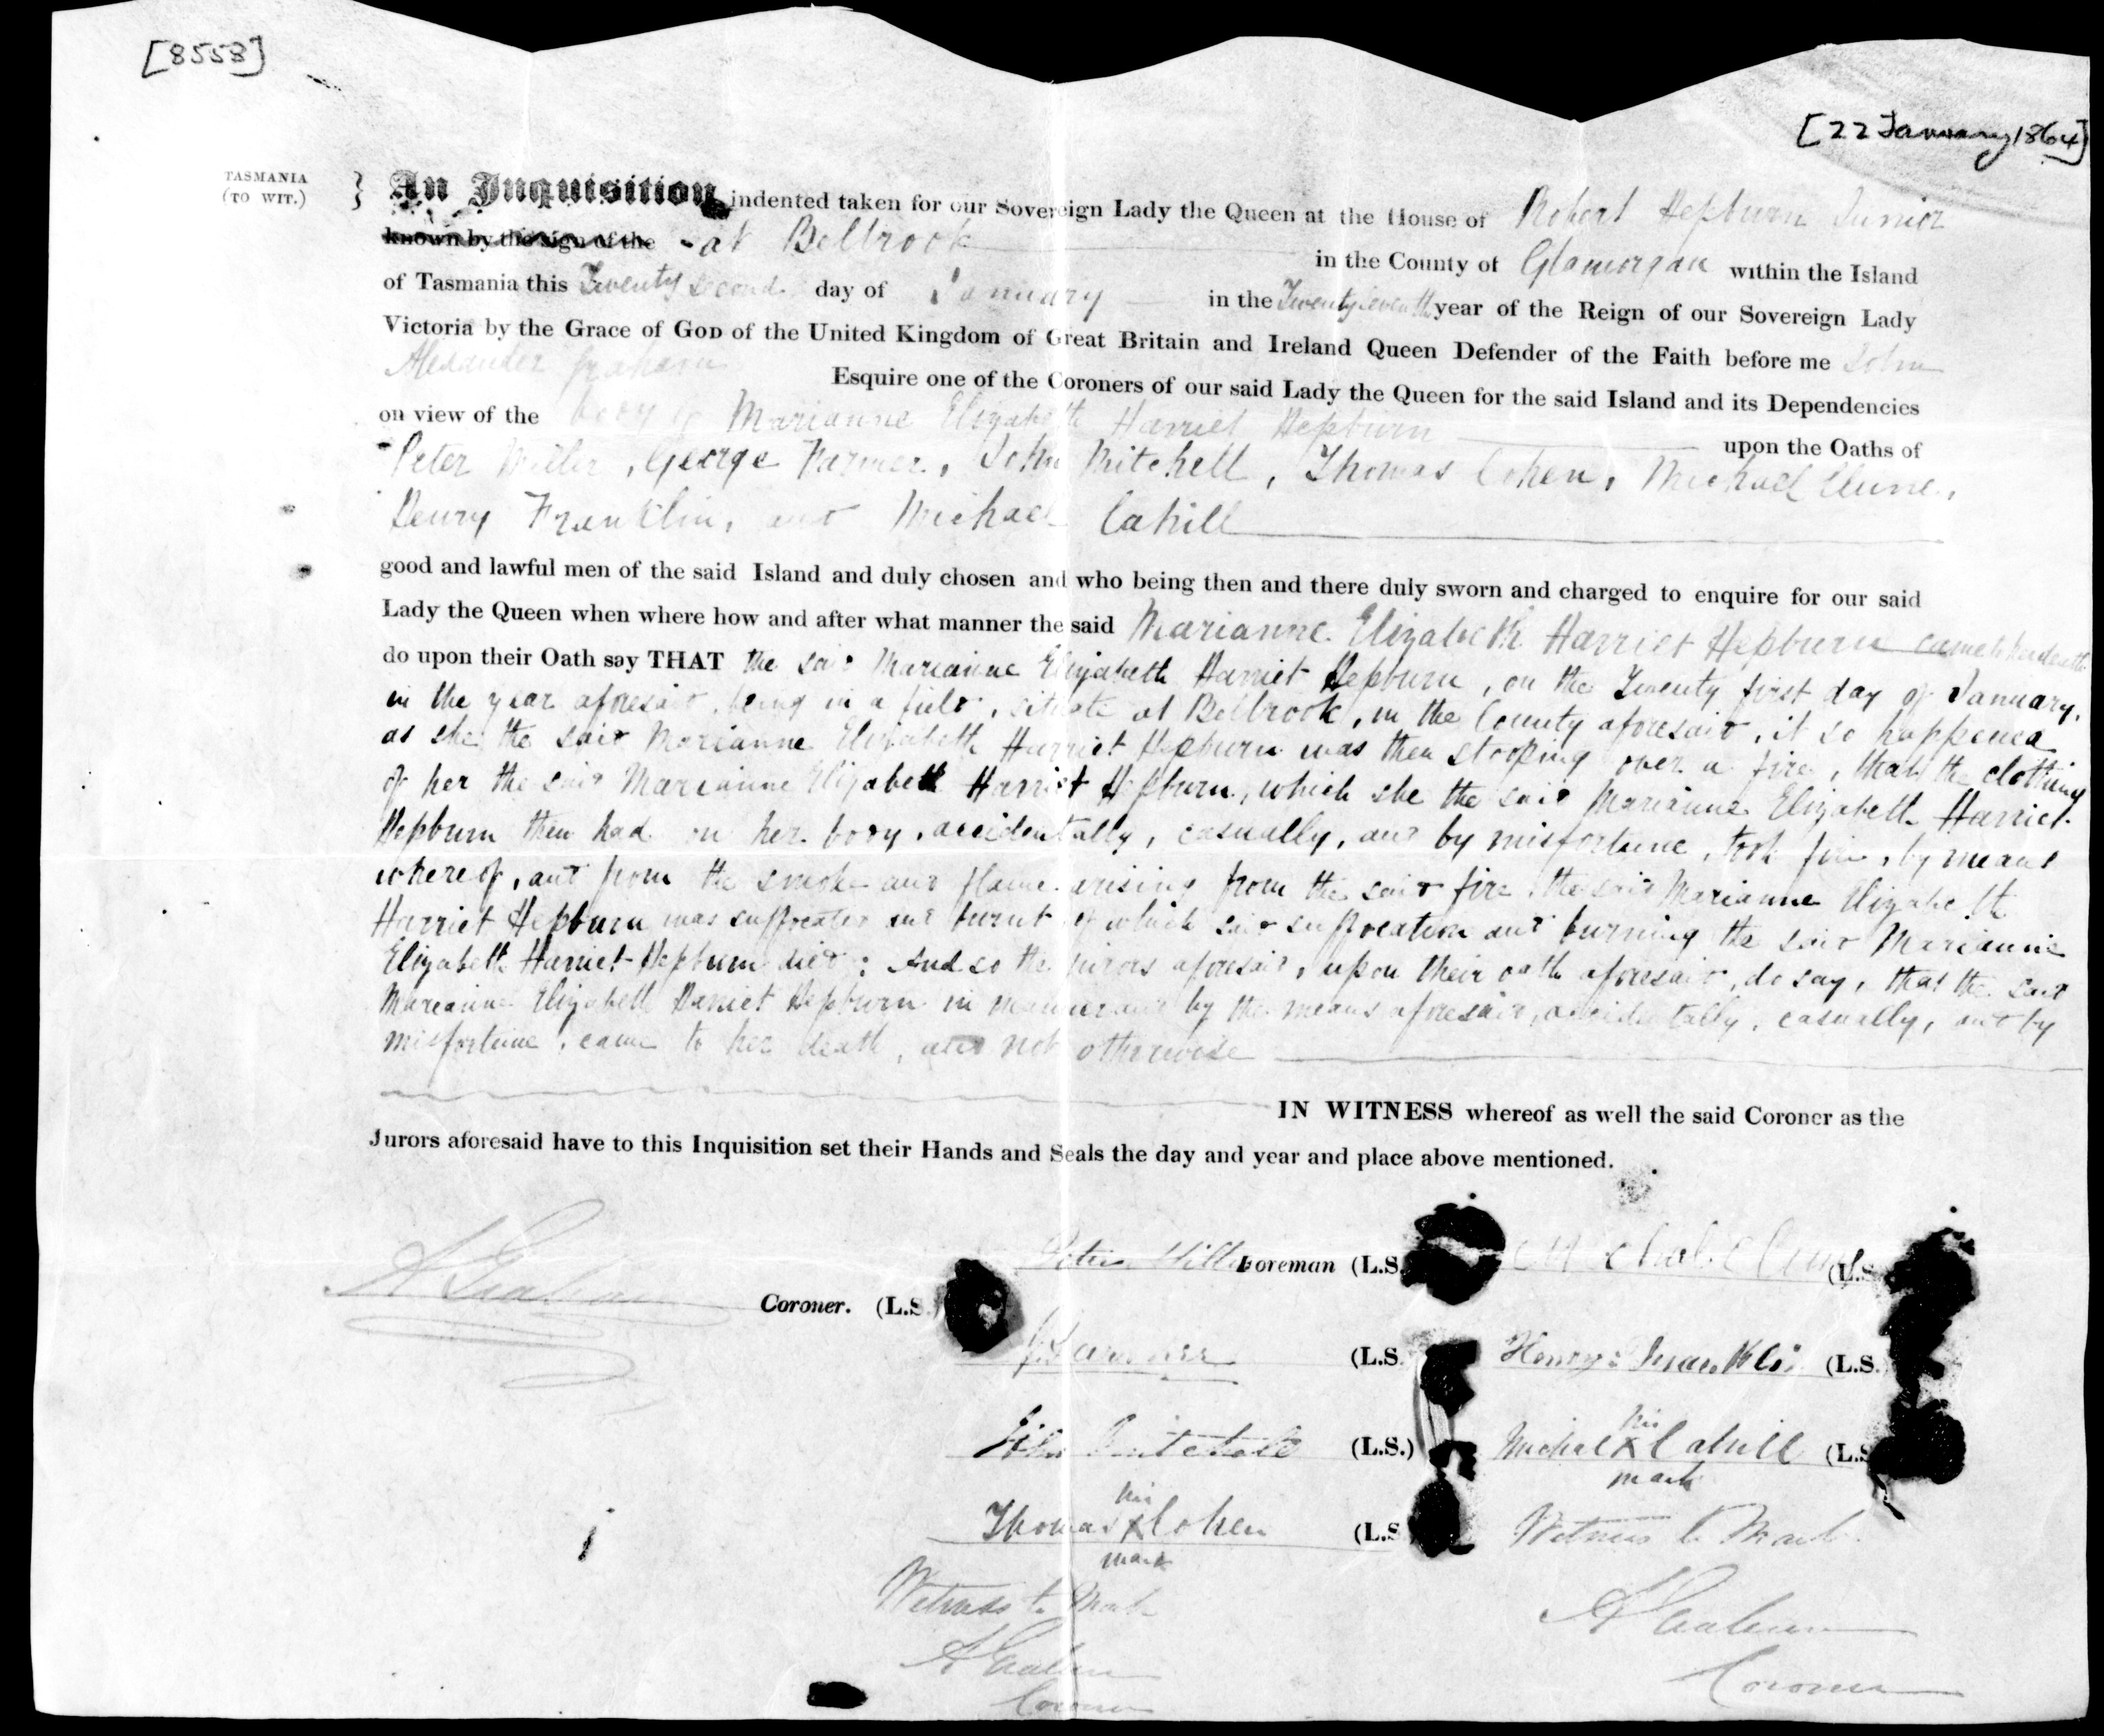 [8553]
[22 January 1864]
TASMANIA
(TO WIT.)
An Inquisition indented taken for our Sovereign Lady the Queen at the House of Robert Hepburn Junior
known by the sign of the at Bellbrook
in the County of Glamorgan within the Island
of Tasmania this Twenty second day of January in the Twenty seventh year of the Reign of our Sovereign Lady
Victoria by the Grace of GOD of the United Kingdom of Great Britain and Ireland Queen Defender of the Faith before me John
Alexander Graham Esquire one of the Coroners of our said Lady the Queen for the said Island and its Dependencies
on view of the body of Marianne Elizabeth Harriet Hepburn upon the Oaths of
Peter Miller, George Farmer, John Mitchell, Thomas Cohen, Michael Clune,
Henry Franklin, and Michael Cahill
good and lawful men of the said Island and duly chosen and who being then and there duly sworn and charged to enquire for our said
Lady the Queen when where how and after what manner the said Marianne Elizabeth Harriet Hepburn came to her death
do upon their Oath say THAT the said Marianne Elizabeth Harriet Hepburn, on the Twenty first day of January,
in the year aforesaid, being in a field, situate at Bellbrook, in the County aforesaid, it so happened
as she the said Marianne Elizabeth Harriet Hepburn was then stooping over a fire, that the clothing
of her the said Marianne Elizabeth Harriet Hepburn, which she the said Marianne Elizabeth Harriet
Hepburn then had on her body, accidentally, casually, and by misfortune, took fire, by means
whereof, and from the smoke and flame arising from the said fire, the said Marianne Elizabeth
Harriet Hepburn was suffocated and burnt of which said suffocation and burning the said Marianne
Elizabeth Harriet Hepburn died: And so the Jurors aforesaid, upon their oath aforesaid, do say, that the said
Marianne Elizabeth Harriet Hepburn in manner and by the means aforesaid, accidentally, casually, and by
misfortune, came to her death, and not otherwise
IN WITNESS whereof as well the said Coroner as the
Jurors aforesaid have to this Inquisition set their Hands and Seals the day and year and place above mentioned.
A Graham Coroner. (L.S.)
Peter Miller Foreman (L.S.)
Michal Clune (L.S.)
G Farmer (L.S.)
Henry Franklin (L.S.)
John Mitchell (L.S.)
his
Michal X Cahill (L.S.)
mark
his
Thomas X Cohen (L.S.)
mark
Witness to Mark
A Graham
Coroner
Witness to Mark
A Graham
Coroner